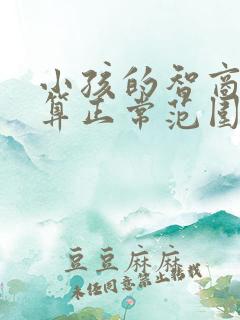 小孩的智商
算正常范围
豆豆麻麻
未经同意禁止转载